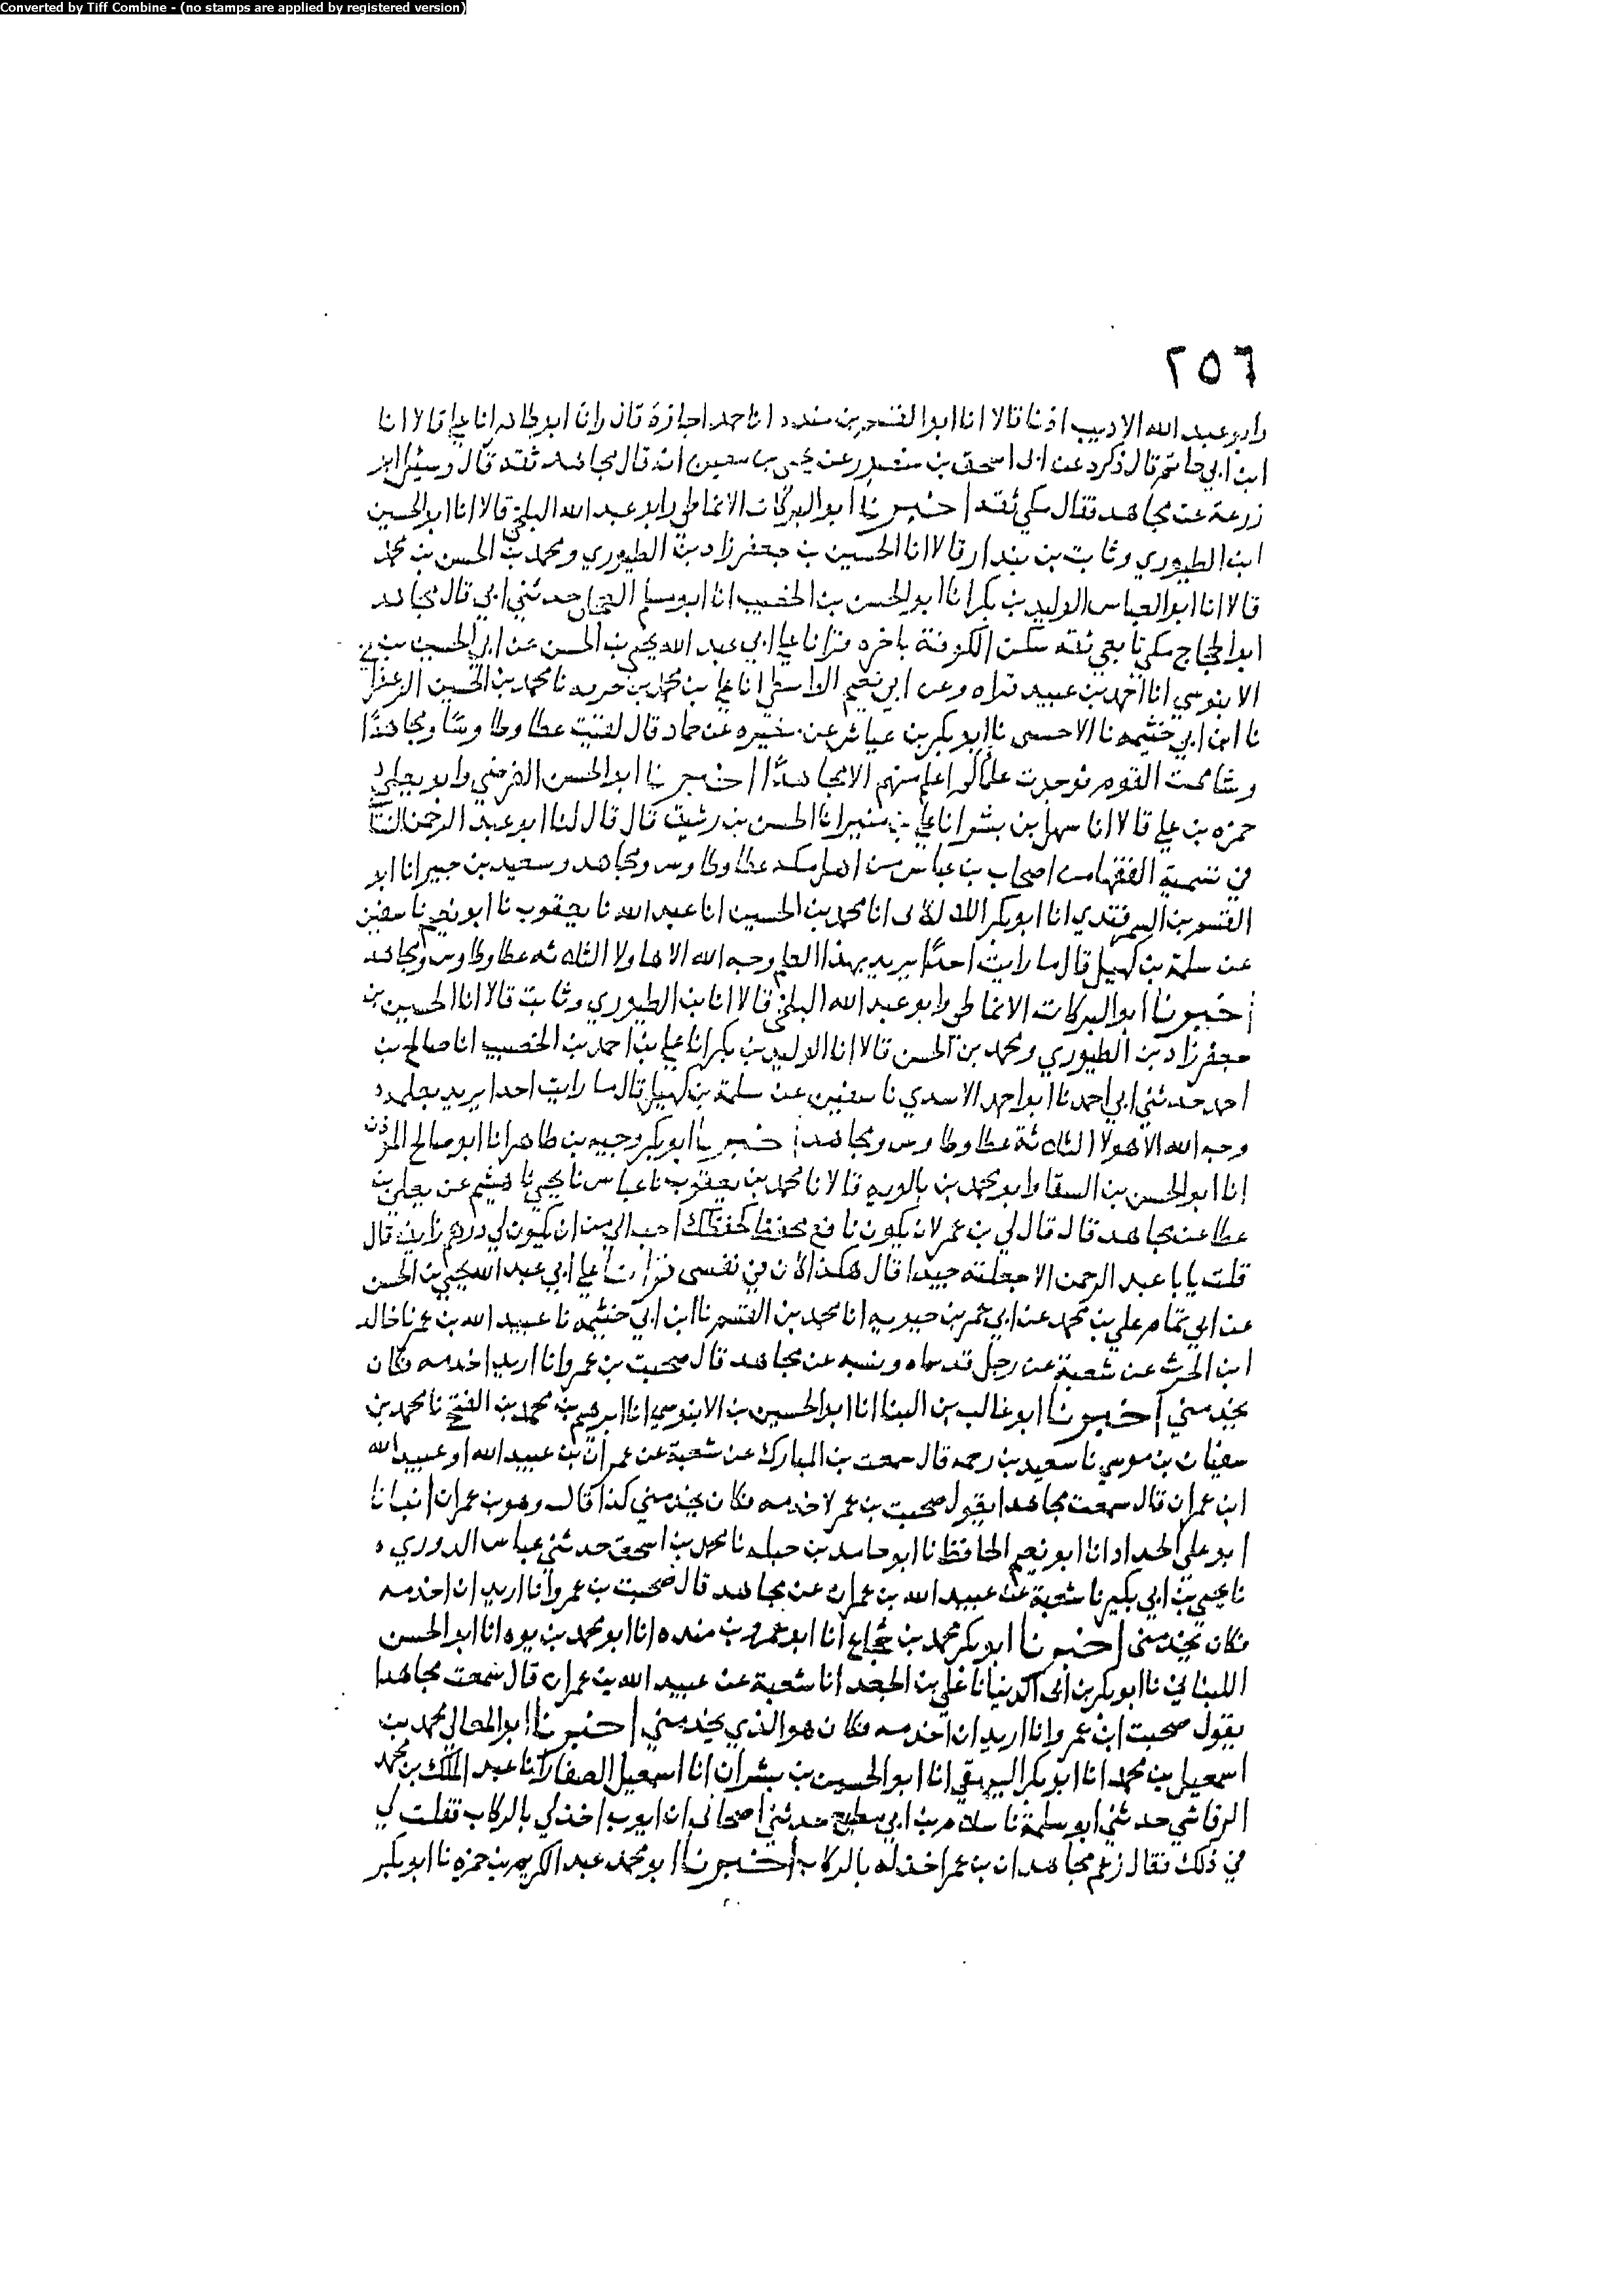 Converted by Tiff Combine - (no stamps are applied by registered version)
٢٥٦
وابو عبد الله الاديب اذنا قالا انا ابو القسم بن منده انا حمد اجازة قال وانا ابو طاهر انا علي قالا انا
ابن ابي حاتم قال ذكره عن ابى اسحق بن منصور عن يحيى بن معين انه قال مجاهد ثقه قال وسئل ابو
زرعة عن مجاهد فقال مكي ثقه اخبرنا ابو البركات الانماطي وابو عبد الله البلخي قالا انا ابو الحسين
ابن الطيوري وثابت بن بندار قالا انا الحسين بن جعفر زاد بن الطيوري ومحمد بن الحسن بن محمد
قالا انا ابو العباس الوليد بن بكر انا ابو الحسن بن الخصيب انا ابو مسلم حدثني ابي قال مجاهد
ابو الحجاج مكي تابعي ثقه سكن الكوفة باخره قرانا علي ابي عبد الله يحيى بن الحسن عن ابي الحسين بن
الابنوسي انا احمد بن عبيد قراه وعن ابي نعيم الواسطي انا علي بن محمد بن نا محمد بن الحسين الزعفراني
نا ابن ابي خثيمه نا الاحمسى نا ابو بكر بن عياش عن مغيره عن حماد قال لقيت عطا وطاوسًا ومجاهدًا
وشاممت القوم فوجدت اعلم منهم الا مجاهدًا اخبرنا ابو الحسن الفرضي وابو يعلي
حمزه بن علي قالا انا سهل بن بشر انا علي بن منير انا الحسن بن رشيق قال قال لنا ابو عبد الرحمن
في تسمية الفقها من اصحاب بن عباس من اهل مكه عطا وطاوس ومجاهد وسعيد بن جبير انا ابو
القسم بن السمرقندي انا ابو بكر انا محمد بن الحسين انا عبد الله نا يعقوب نا ابو نعيم نا سفين
عن سلمة بن كهيل قال ما رايت احدًا يريد بهذا العلم وجه الله الا هاولا الثلاثه عطا وطاوس ومجاهد
اخبرنا ابو البركات الانماطي وابو عبد الله البلخي قالا انا بن الطيوري وثابت قالا انا الحسين بن
جعفر زاد بن الطيوري ومحمد بن الحسن قالا انا الوليد بن بكر انا علي بن احمد بن الخصيب انا صالح بن
احمد حدثني ابي احمد نا ابو احمد الاسدي نا سفين عن سلمة بن كهيل قال ما رايت احدا يريد بعلمه
وجه الله الا هولا الثلاثة عطا وطاوس ومجاهد اخبرنا ابو بكر وجيه بن طاهر انا ابو صالح المؤذن
انا ابو الحسن بن السقا وابو محمد بن بالويه قالا نا محمد بن يعقوب نا عباس نا يحيي نا هشيم عن يعلي بن
عطا عن مجاهد قال قال لي بن عمر لان يكون نافع يحفظ كحفظك احب الي من ان يكون لي درهم زايف قال
قلت يابا عبد الرحمن الا جعلته جيدا قال هكذا كان في نفسى قرانا علي ابي عبد الله يحيي بن الحسن
عن ابي تمام علي بن محمد عن ابي عمر بن حيويه انا محمد بن القسم نا ابن ابي خثيمه نا عبيد الله بن عمر نا خالد
ابن الحرث عن شعبة عن رجل قد سماه ونسبه عن مجاهد قال صحبت بن عمر وانا اريد اخدمه فكان
يخدمني اخبرنا ابو غالب بن البنا انا ابو الحسين بن الابنوسي انا ابرهيم بن محمد بن الفتح نا محمد بن
سفيان بن موسي نا سعيد بن رحمه قال سمعت بن المبارك عن شعبة عن عمران بن عبيد الله او عبيد الله
ابن عمران قال سمعت مجاهدا يقول صحبت بن عمر لاخدمه فكان يخدمني كذا قال وهو بن عمران انبانا
ابو علي الحداد انا ابو نعيم الحافظ نا ابو حامد بن جبله نا محمد بن اسحق حدثني عباس الدوري
نا يحيي بن ابي بكير نا شعبة عن عبيد الله بن عمران عن مجاهد قال صحبت بن عمر وانا اريد ان اخدمه
فكان يخدمني اخبرنا ابو بكر محمد بن شجاع انا ابو عمرو بن منده انا ابو محمد بن يوه انا ابو الحسن
اللبناني نا ابو بكر بن ابى الدنيا نا علي بن الجعد انا شعبة عن عبيد الله بن عمران قال سمعت مجاهدا
يقول صحبت ابن عمر وانا اريد ان اخدمه فكان هو الذي يخدمني اخبرنا ابو المعالي محمد بن
اسمعيل بن محمد انا ابو بكر البيهقي انا ابو الحسين بن بشران انا اسمعيل الصفار نا عبد الملك بن محمد
الرقاشي حدثني ابو سلمة نا سلام بن ابي مطيع حدثني اصحابى ان ايوب اخذ لي بالركاب فقلت لي
في ذلك فقال زعم مجاهد ان بن عمر اخذ له بالركاب اخبرنا ابو محمد عبد الكريم بن حمزه نا ابو بكر